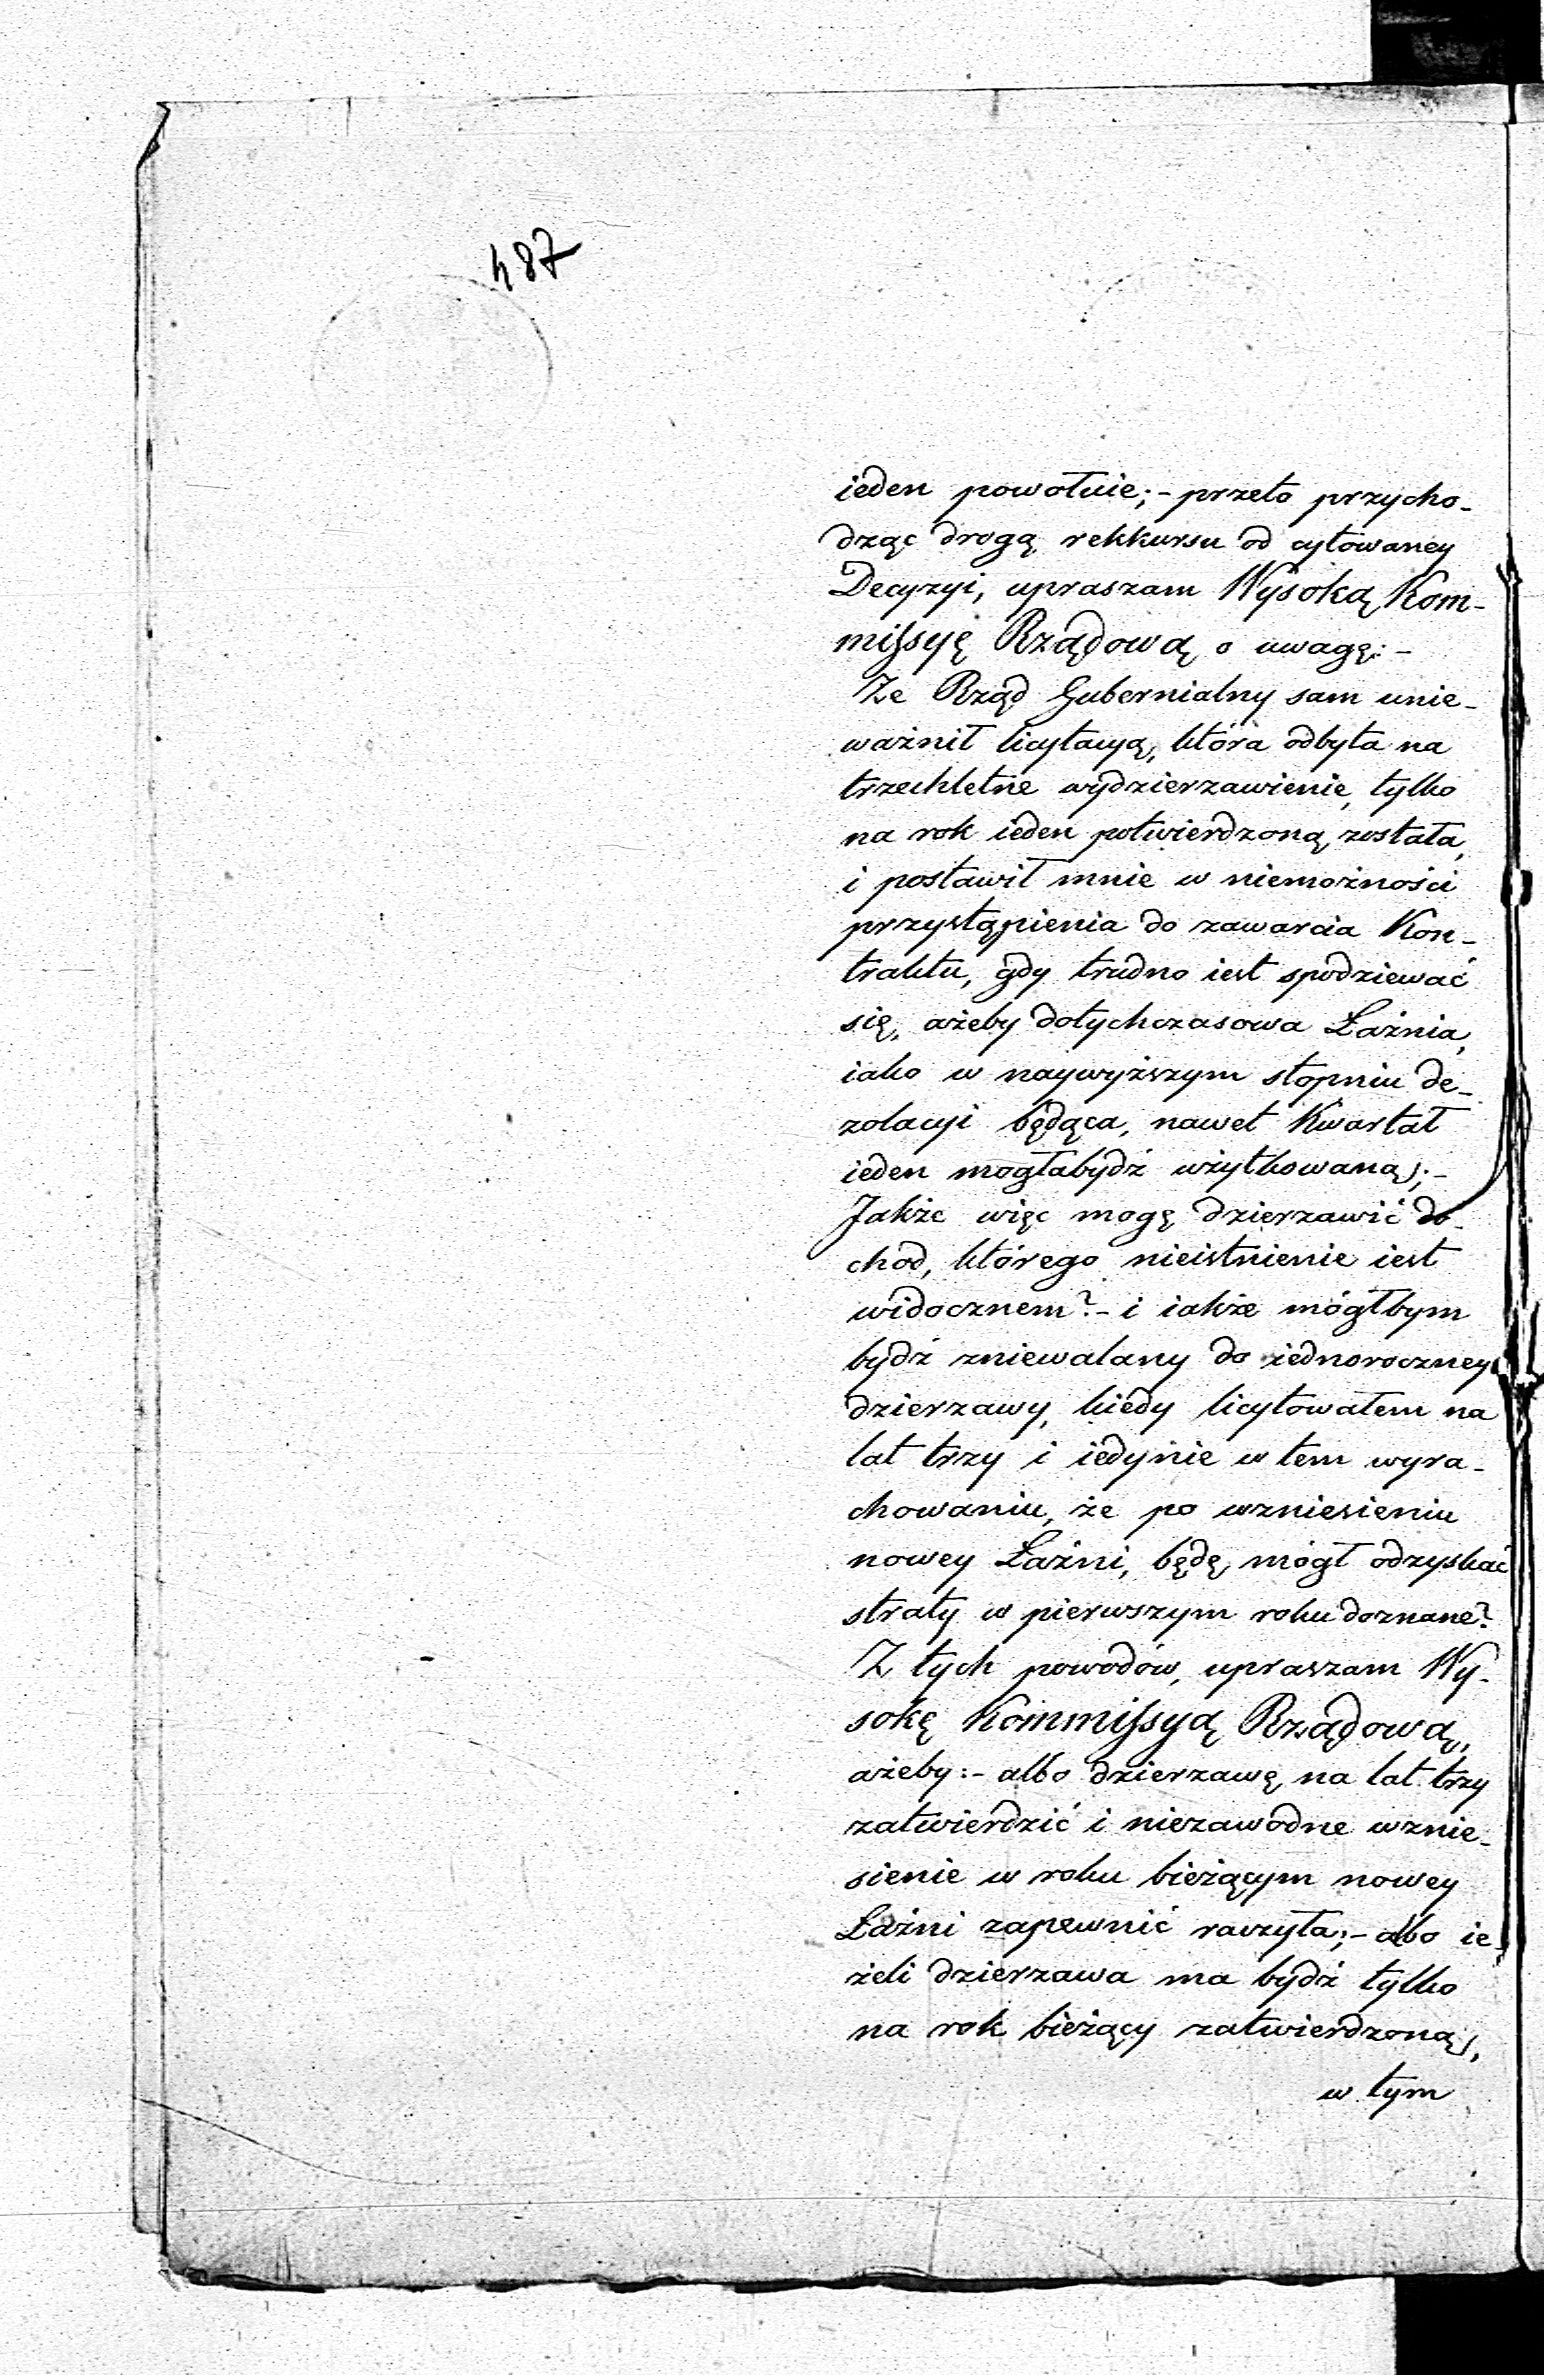 487
ieden powołuie; - przeto przycho-
dząc drogą rekkursu od cytowaney
Decyzyi, upraszam Wysoką Kom-
missyę Rządową o uwagę: -
Ze Rząd Gubernialny sam unie-
ważnił licytacyą, która odbyta na
trzechletne wydzierzawienie, tylko
na rok ieden potwierdzoną została,
i postawił mnie w niemożności
przystąpienia do zawarcia Kon-
traktu, gdy trudno iest spodziewać
się, ażeby dotychczasowa Łaźnia,
iako w naywyższym stopniu de-
zolacyi będąca, nawet Kwartał
ieden mogłabydź użytkowaną; -
Jakże więc mogę dzierzawić do-
chod, którego nieistnienie iest
widocznem? - i iakże mógłbym
bydź zniewalany do iednoroczney
dzierzawy, kiedy licytowałem na
lat trzy i iedynie w tem wyra-
chowaniu, że po wzniesieniu
nowey Łaźni, będę mógł odzyskać
straty w pierwszym roku doznane?
Z tych powodów, upraszam Wy-
sokę Kommissyą Rządową,
ażeby: - albo dzierzawę na lat trzy
zatwierdzić i niezawodne wznie-
sienie w roku bieżącym nowey
Łaźni zapewnić raczyła; - albo ie-
żeli dzierzawa ma bydź tylko
na rok bieżący zatwierdzoną,
w tym